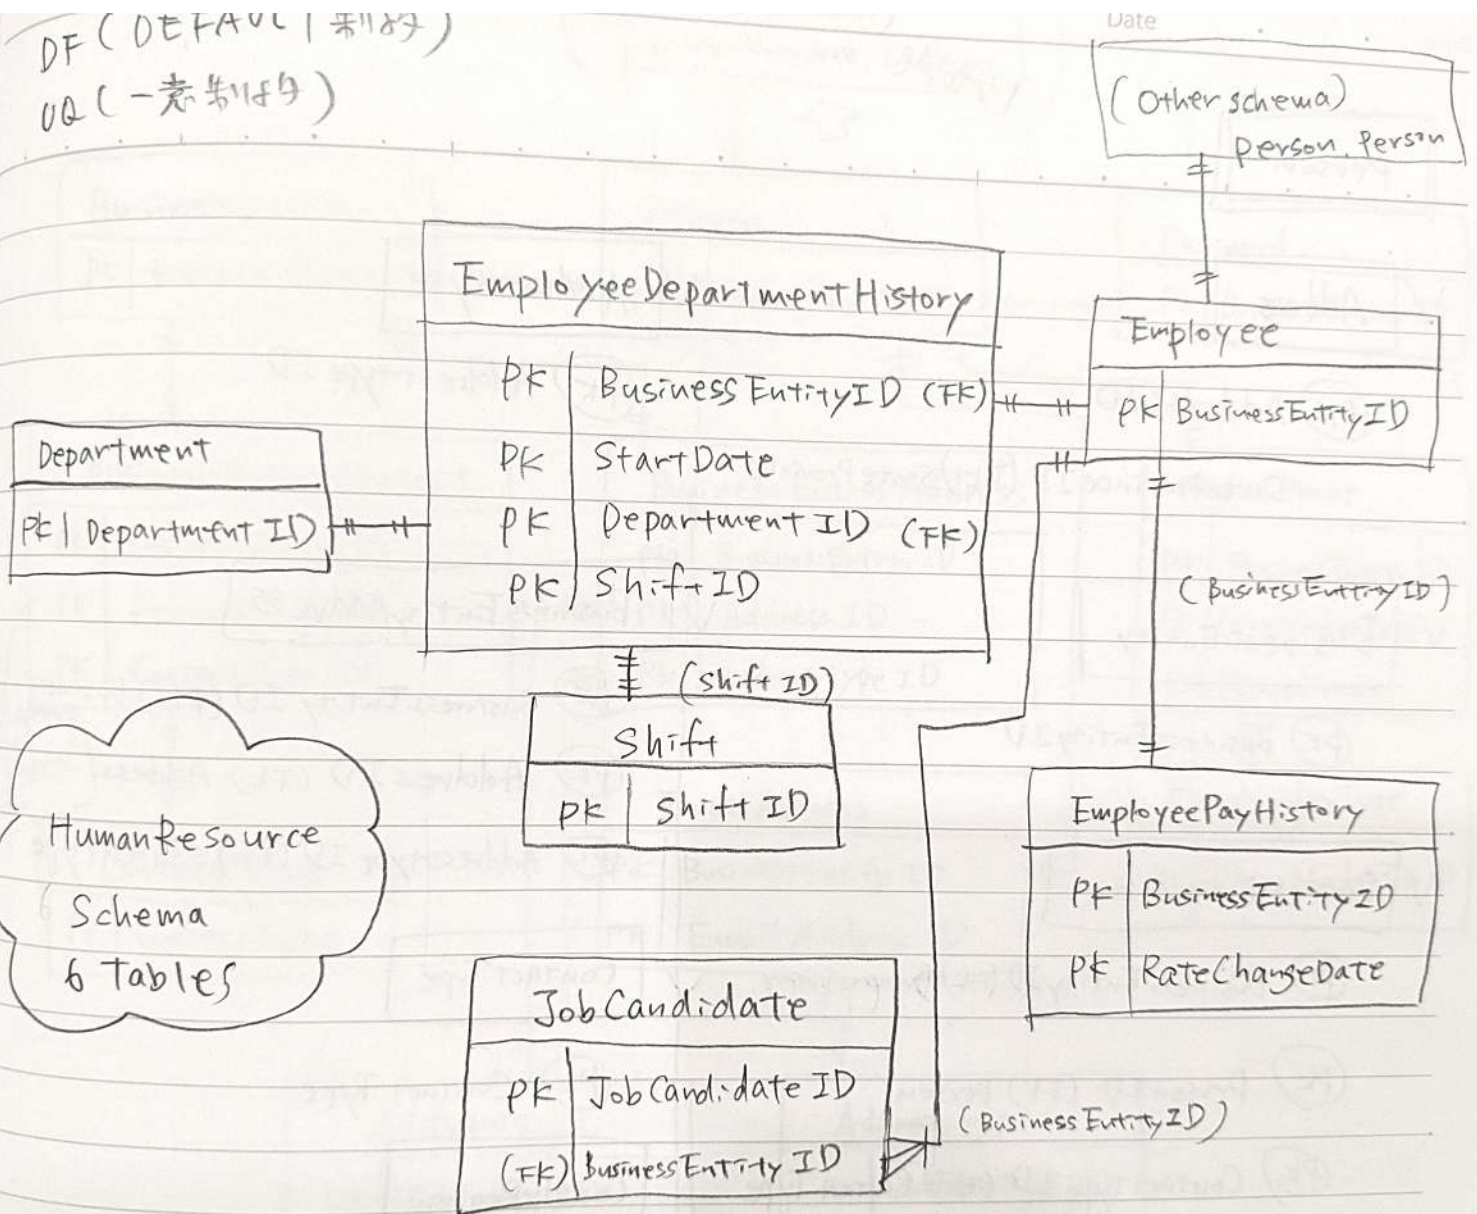 DF (DEFAULT 制約)
UQ (一意制約)
Date
(Other schema)
person.Person
EmployeeDepartmentHistory
PK BusinessEntityID (FK)
PK StartDate
PK DepartmentID (FK)
PK ShiftID
Employee
PK BusinessEntityID
Department
PK DepartmentID
(BusinessEntityID)
(ShiftID)
Shift
PK ShiftID
HumanResource
Schema
6 Tables
EmployeePayHistory
PK BusinessEntityID
PK RateChangeDate
JobCandidate
PK JobCandidateID
(FK) BusinessEntityID
(BusinessEntityID)